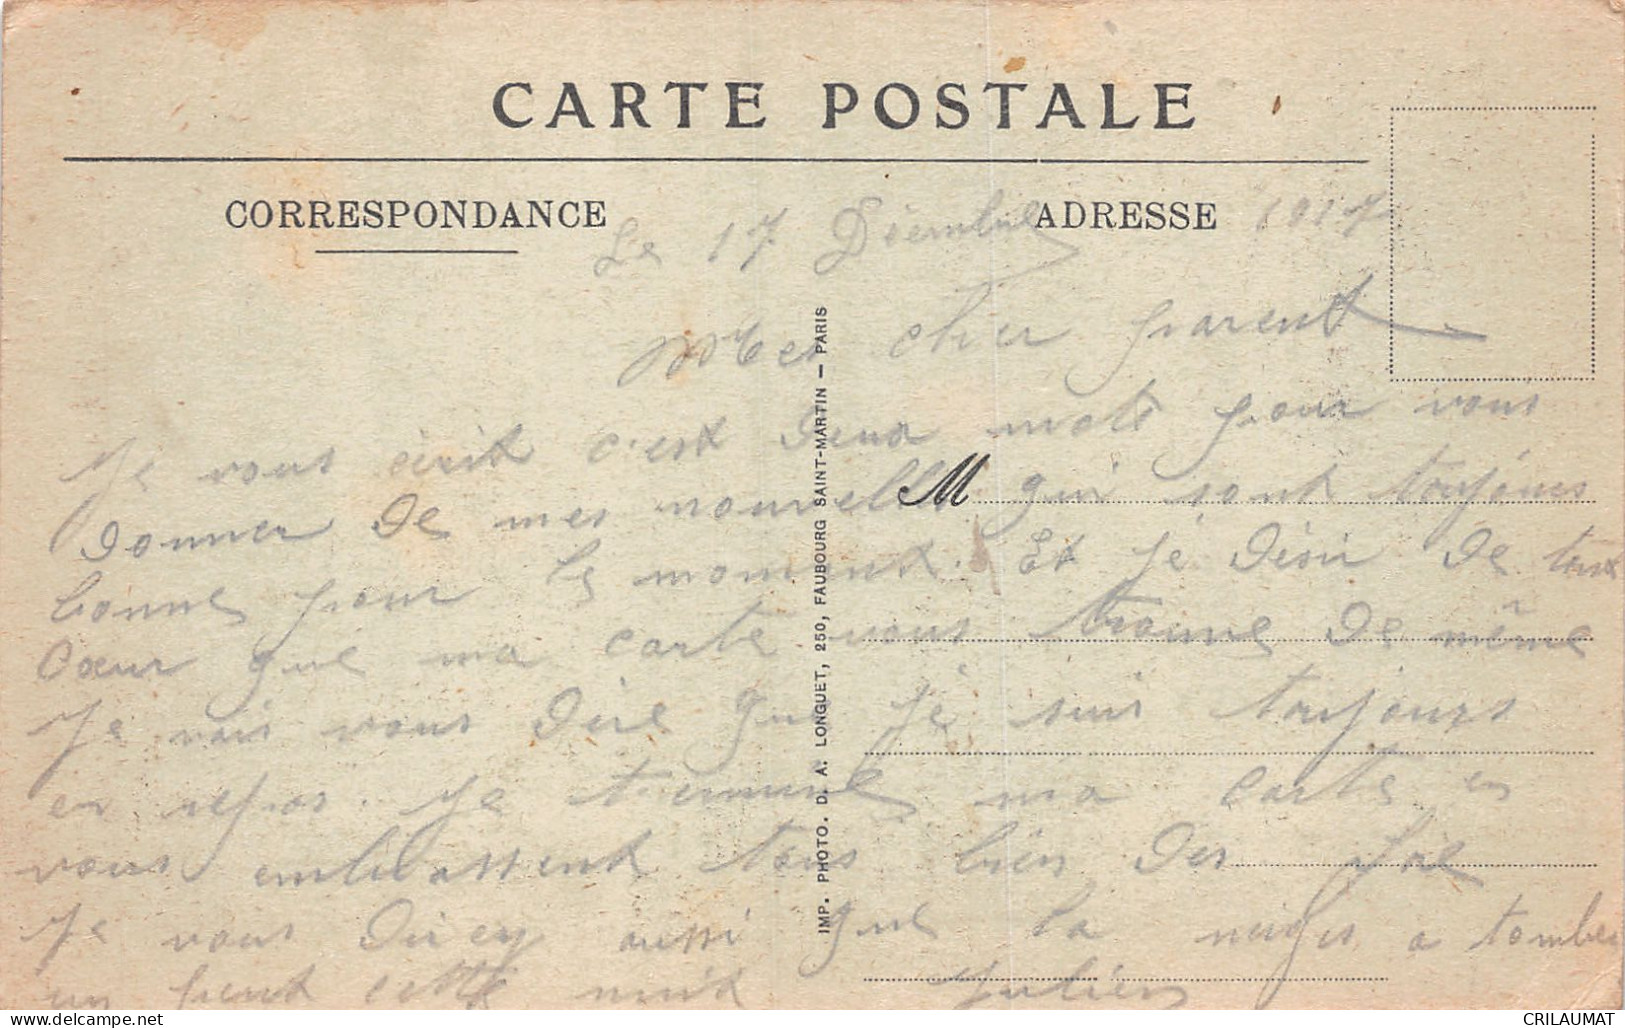 CARTE POSTALE
CORRESPONDANCE
ADRESSE
Le 17 Décembre 1917
Mes cher parent
Je vous écrit c'est deux mots pour vous
donner de mes nouvelle qui sont toujours
bonne pour le moment. Et je désir de tout
cœur que ma carte vous trouve de même
Je vais vous dire que je suis toujours
en repos. Je termine ma carte en
vous embrassent tous bien des fois
Je vous direz aussi que la neige a tomber
un peut cette nuit Julien
M
IMP. PHOTO. D. A. LONGUET, 250, FAUBOURG SAINT-MARTIN — PARIS
www.delcampe.net
CRILAUMAT